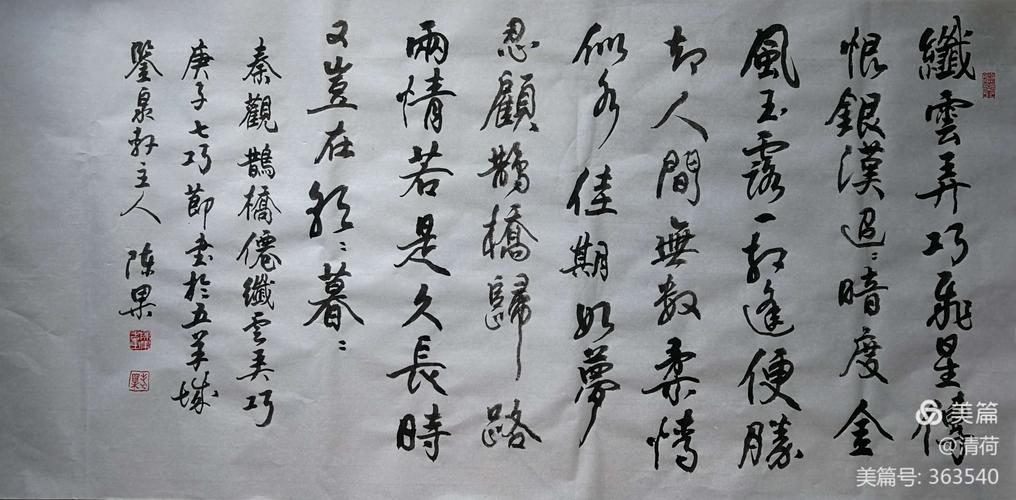 纖雲弄巧飛星傳
恨銀漢迢〻暗度金
風玉露一相逢便勝
却人間無數柔情
似水佳期如夢
忍顧鵲橋歸路
兩情若是久長時
又豈在朝〻暮〻
秦觀鵲橋僊纖雲弄巧
庚子七巧節書於五羊城
鑒泉軒主人 陳果
美篇
@清荷
美篇号: 363540